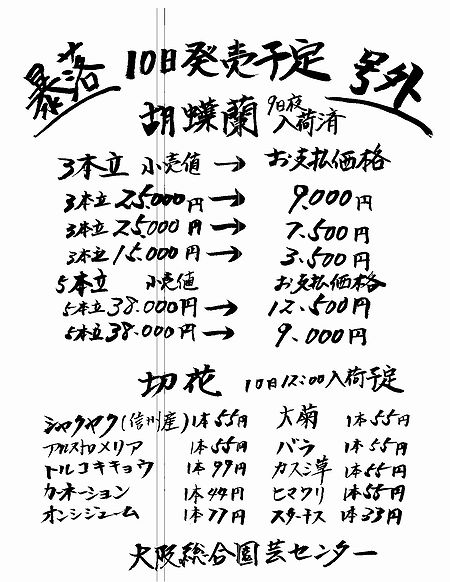 暴落 10日発売予定 号外
胡蝶蘭 9日夜入荷済
3本立 小売値 → お支払価格
3本立 25.000円 → 9.000円
3本立 25.000円 → 7.500円
3本立 15.000円 → 3.500円
5本立 小売値 お支払価格
5本立 38.000円 → 12.500円
5本立 38.000円 → 9.000円
切花 10日12:00入荷予定
シャクヤク(信州産) 1本55円 大菊 1本55円
アルストロメリア 1本55円 バラ 1本55円
トルコキキョウ 1本99円 カスミ草 1本55円
カーネーション 1本44円 ヒマワリ 1本55円
オンシジューム 1本77円 スターチス 1本33円
大阪総合園芸センター